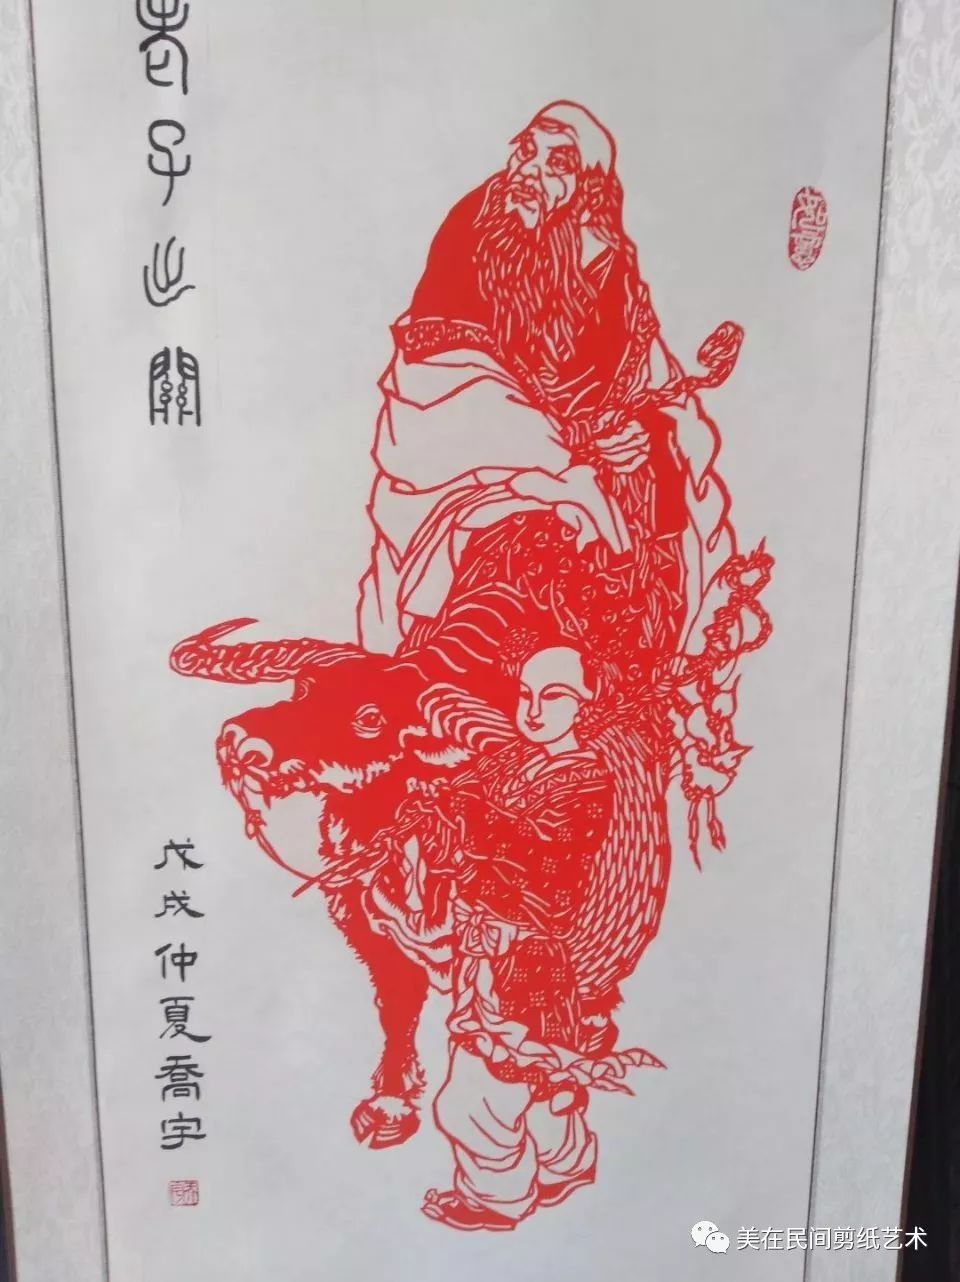 老子出關
戊戌仲夏喬宇
美在民间剪纸艺术